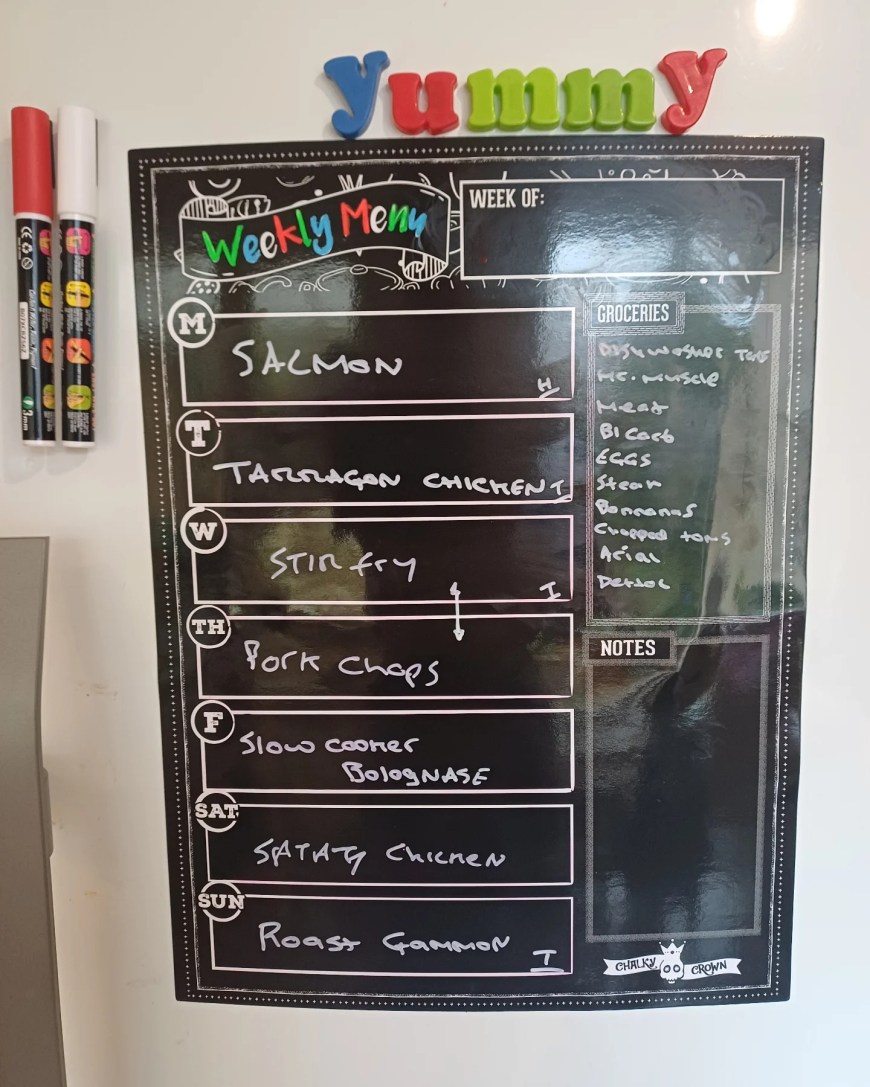 yummy
Weekly Menu
WEEK OF:
M
SALMON
H
T
TARRAGON CHICKEN I
W
STIR fry
I
TH
Pork Chops
F
Slow cooker
BologNASE
SAT
SATATY CHICKEN
SUN
Roast Gammon
I
GROCERIES
Dishwasher
Mr. Muscle
Meat
BI Carb
EGGS
Steak
Bannanas
Chopped toms
Arial
Dettol
NOTES
CHALKY CROWN
3mm